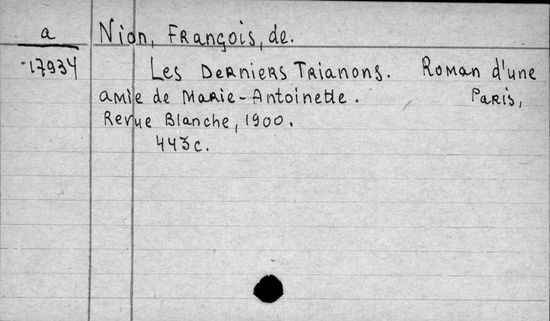 a Nion, François, de.
17934 Les Derniers Trianons. Roman d'une
amie de Marie-Antoinette. Paris,
Revue Blanche, 1900.
443c.